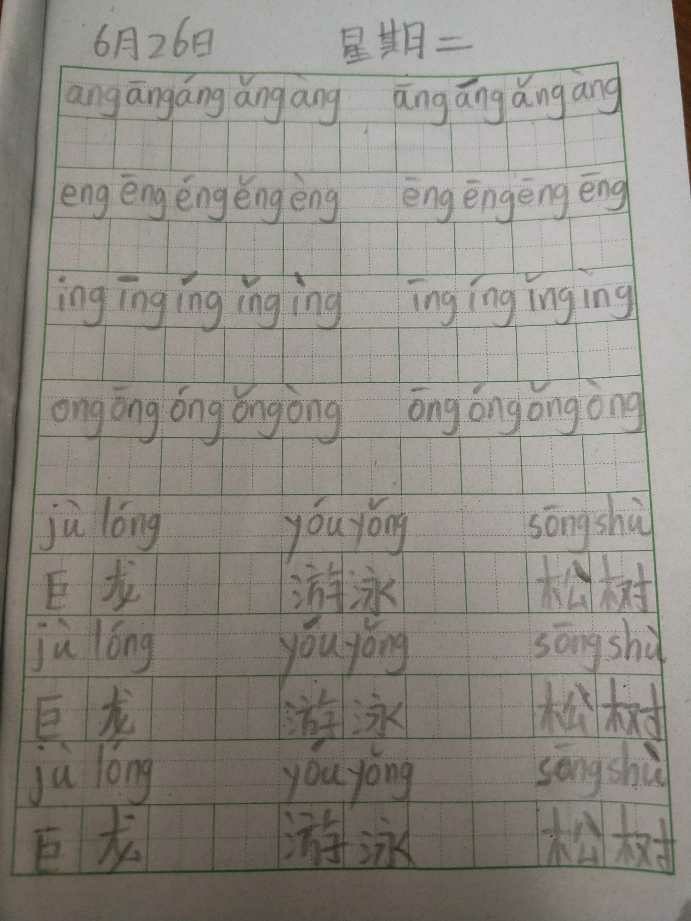 6月26日 星期二
ang āng áng ǎng àng āng áng ǎng àng
eng ēng éng ěng èng ēng ēng ēng ēng
ing īng íng ǐng ìng īng íng ǐng ìng
ong ōng óng ǒng òng ōng óng ǒng òng
jù lóng yóu yǒng sōng shù
巨龙 游泳 松树
jù lóng yóu yǒng sōng shù
巨龙 游泳 松树
jù lóng yóu yǒng sōng shù
巨龙 游泳 松树